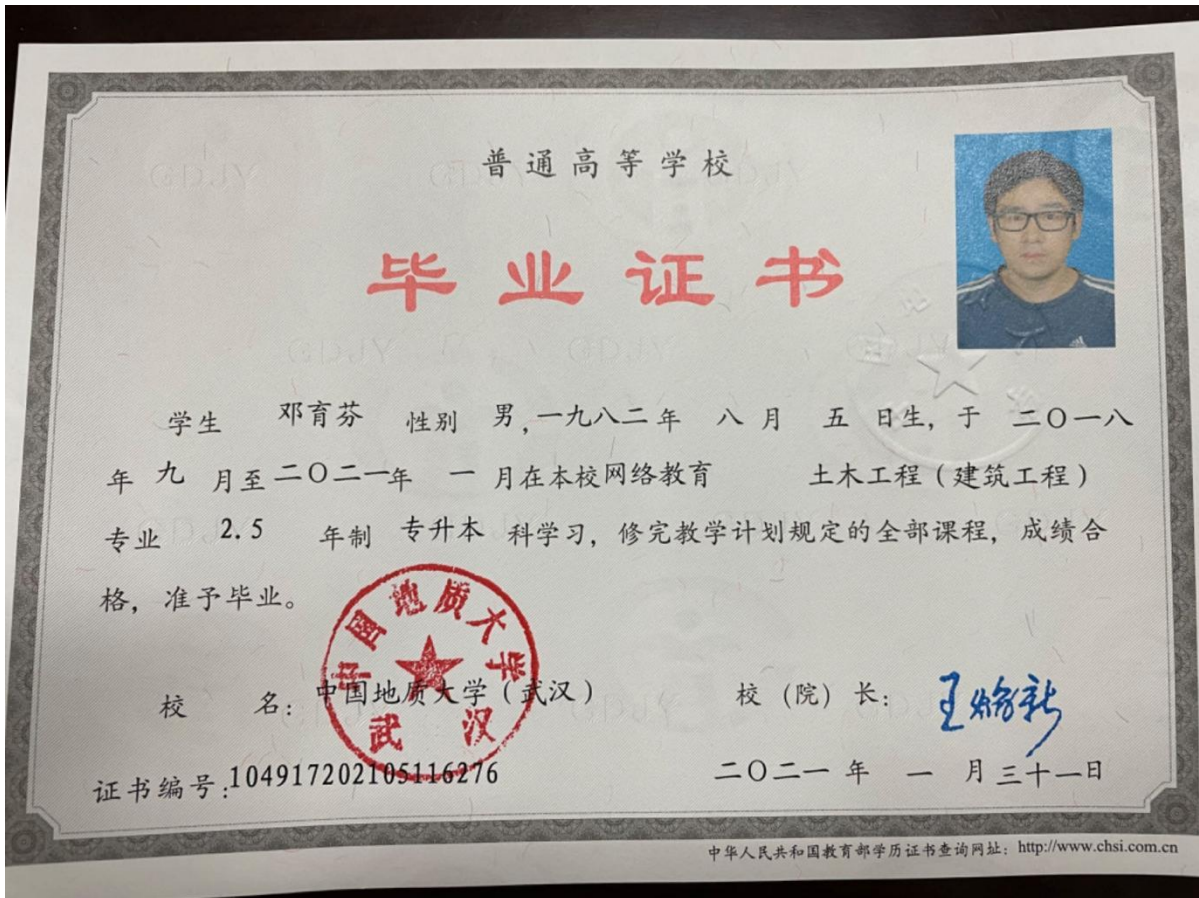 普通高等学校
毕业证书
学生 邓育芬 性别 男，一九八二年 八月 五日生，于 二〇一八
年九月至二〇二一年 一月在本校网络教育 土木工程（建筑工程）
专业 2.5 年制 专升本 科学习，修完教学计划规定的全部课程，成绩合
格，准予毕业。
中国地质大学
武汉
校 名：中国地质大学（武汉） 校（院）长：王焰新
证书编号：104917202105116276 二〇二一年 一月三十一日
中华人民共和国教育部学历证书查询网址：http://www.chsi.com.cn